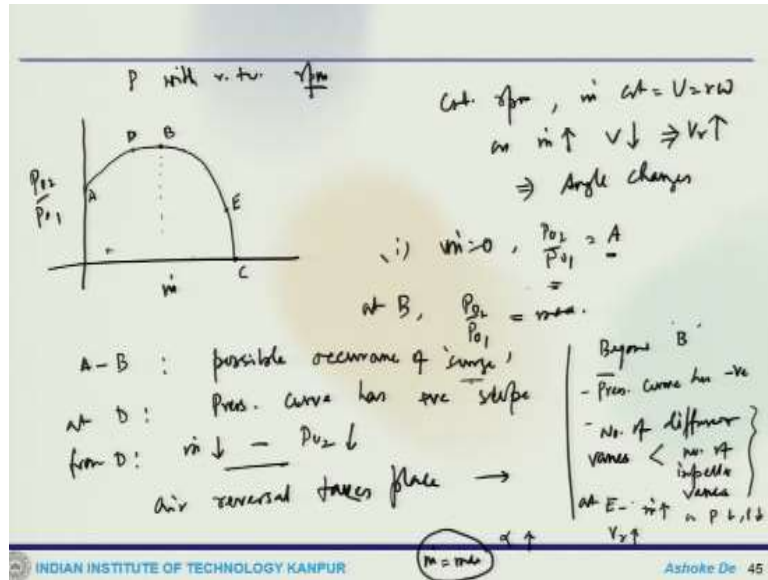 P with r. tv. rpm
Cst. rpm, ṁ cst = U = rω
as ṁ↑ V↓ ⇒ Vr↑
⇒ Angle changes
P02/P01
A
D
B
E
C
ṁ
i) ṁ=0, P02/P01 = A
at B, P02/P01 = max.
A-B : possible occurance of 'surge'
at D : Pres. curve has +ve slope
from D: ṁ↓ - P02↓
air reversal takes place →
Beyond 'B'
- Pres. curve has -ve
- No. of diffuser
vanes < no. of
impeller
vanes
at E- ṁ↑ P↓, ρ↓
Vr↑
α↑
ṁ = max
INDIAN INSTITUTE OF TECHNOLOGY KANPUR
Ashoke De 45